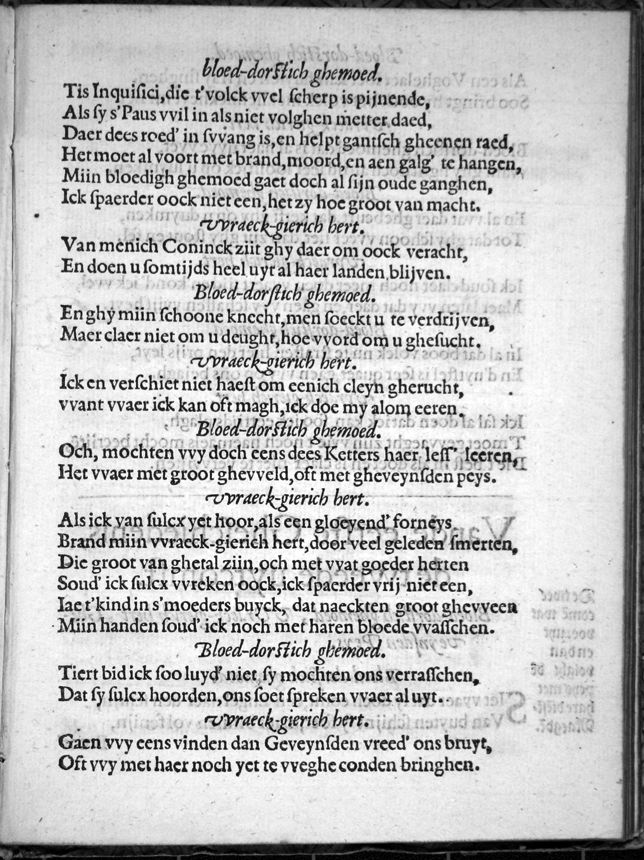 bloed-dorstich ghemoed.
Tis Inquisici, die t'volck vvel scherp is pijnende,
Als sy s'Paus vvil in als niet volghen metter daed,
Daer dees roed' in svvang is, en helpt gantsch gheenen raed,
Het moet al voort met brand, moord, en aen galg' te hangen,
Miin bloedigh ghemoed gaet doch al sijn oude ganghen,
Ick spaerder oock niet een, het zy hoe groot van macht.
vvraeck-gierich hert.
Van menich Coninck ziit ghy daer om oock veracht,
En doen u somtijds heel uyt al haer landen blijven.
Bloed-dorstich ghemoed.
En ghy miin schoone knecht, men soeckt u te verdrijven,
Maer claer niet om u deught, hoe vvord om u ghesucht.
vvraeck-gierich hert.
Ick en verschiet niet haest om eenich cleyn gherucht,
vvant vvaer ick kan oft magh, ick doe my alom eeren.
Bloed-dorstich ghemoed.
Och, mochten vvy doch eens dees Ketters haer less' leeren,
Het vvaer met groot ghevveld, oft met gheveynsden peys.
vvraeck-gierich hert.
Als ick van sulcx yet hoor, als een gloeyend' forneys
Brand miin vvraeck-gierich hert, door veel geleden smerten,
Die groot van ghetal ziin, och met vvat goeder herten
Soud' ick sulcx vvreken oock, ick spaerder vrij niet een,
Iae t'kind in s'moeders buyck, dat naeckten groot ghevveen
Miin handen soud' ick noch met haren bloede vvasschen.
Bloed-dorstich ghemoed.
Tiert bid ick soo luyd' niet, sy mochten ons verrasschen,
Dat sy sulcx hoorden, ons soet spreken vvaer al uyt.
vvraeck-gierich hert.
Gaen vvy eens vinden dan Geveynsden vreed' ons bruyt,
Oft vvy met haer noch yet te vveghe conden bringhen.